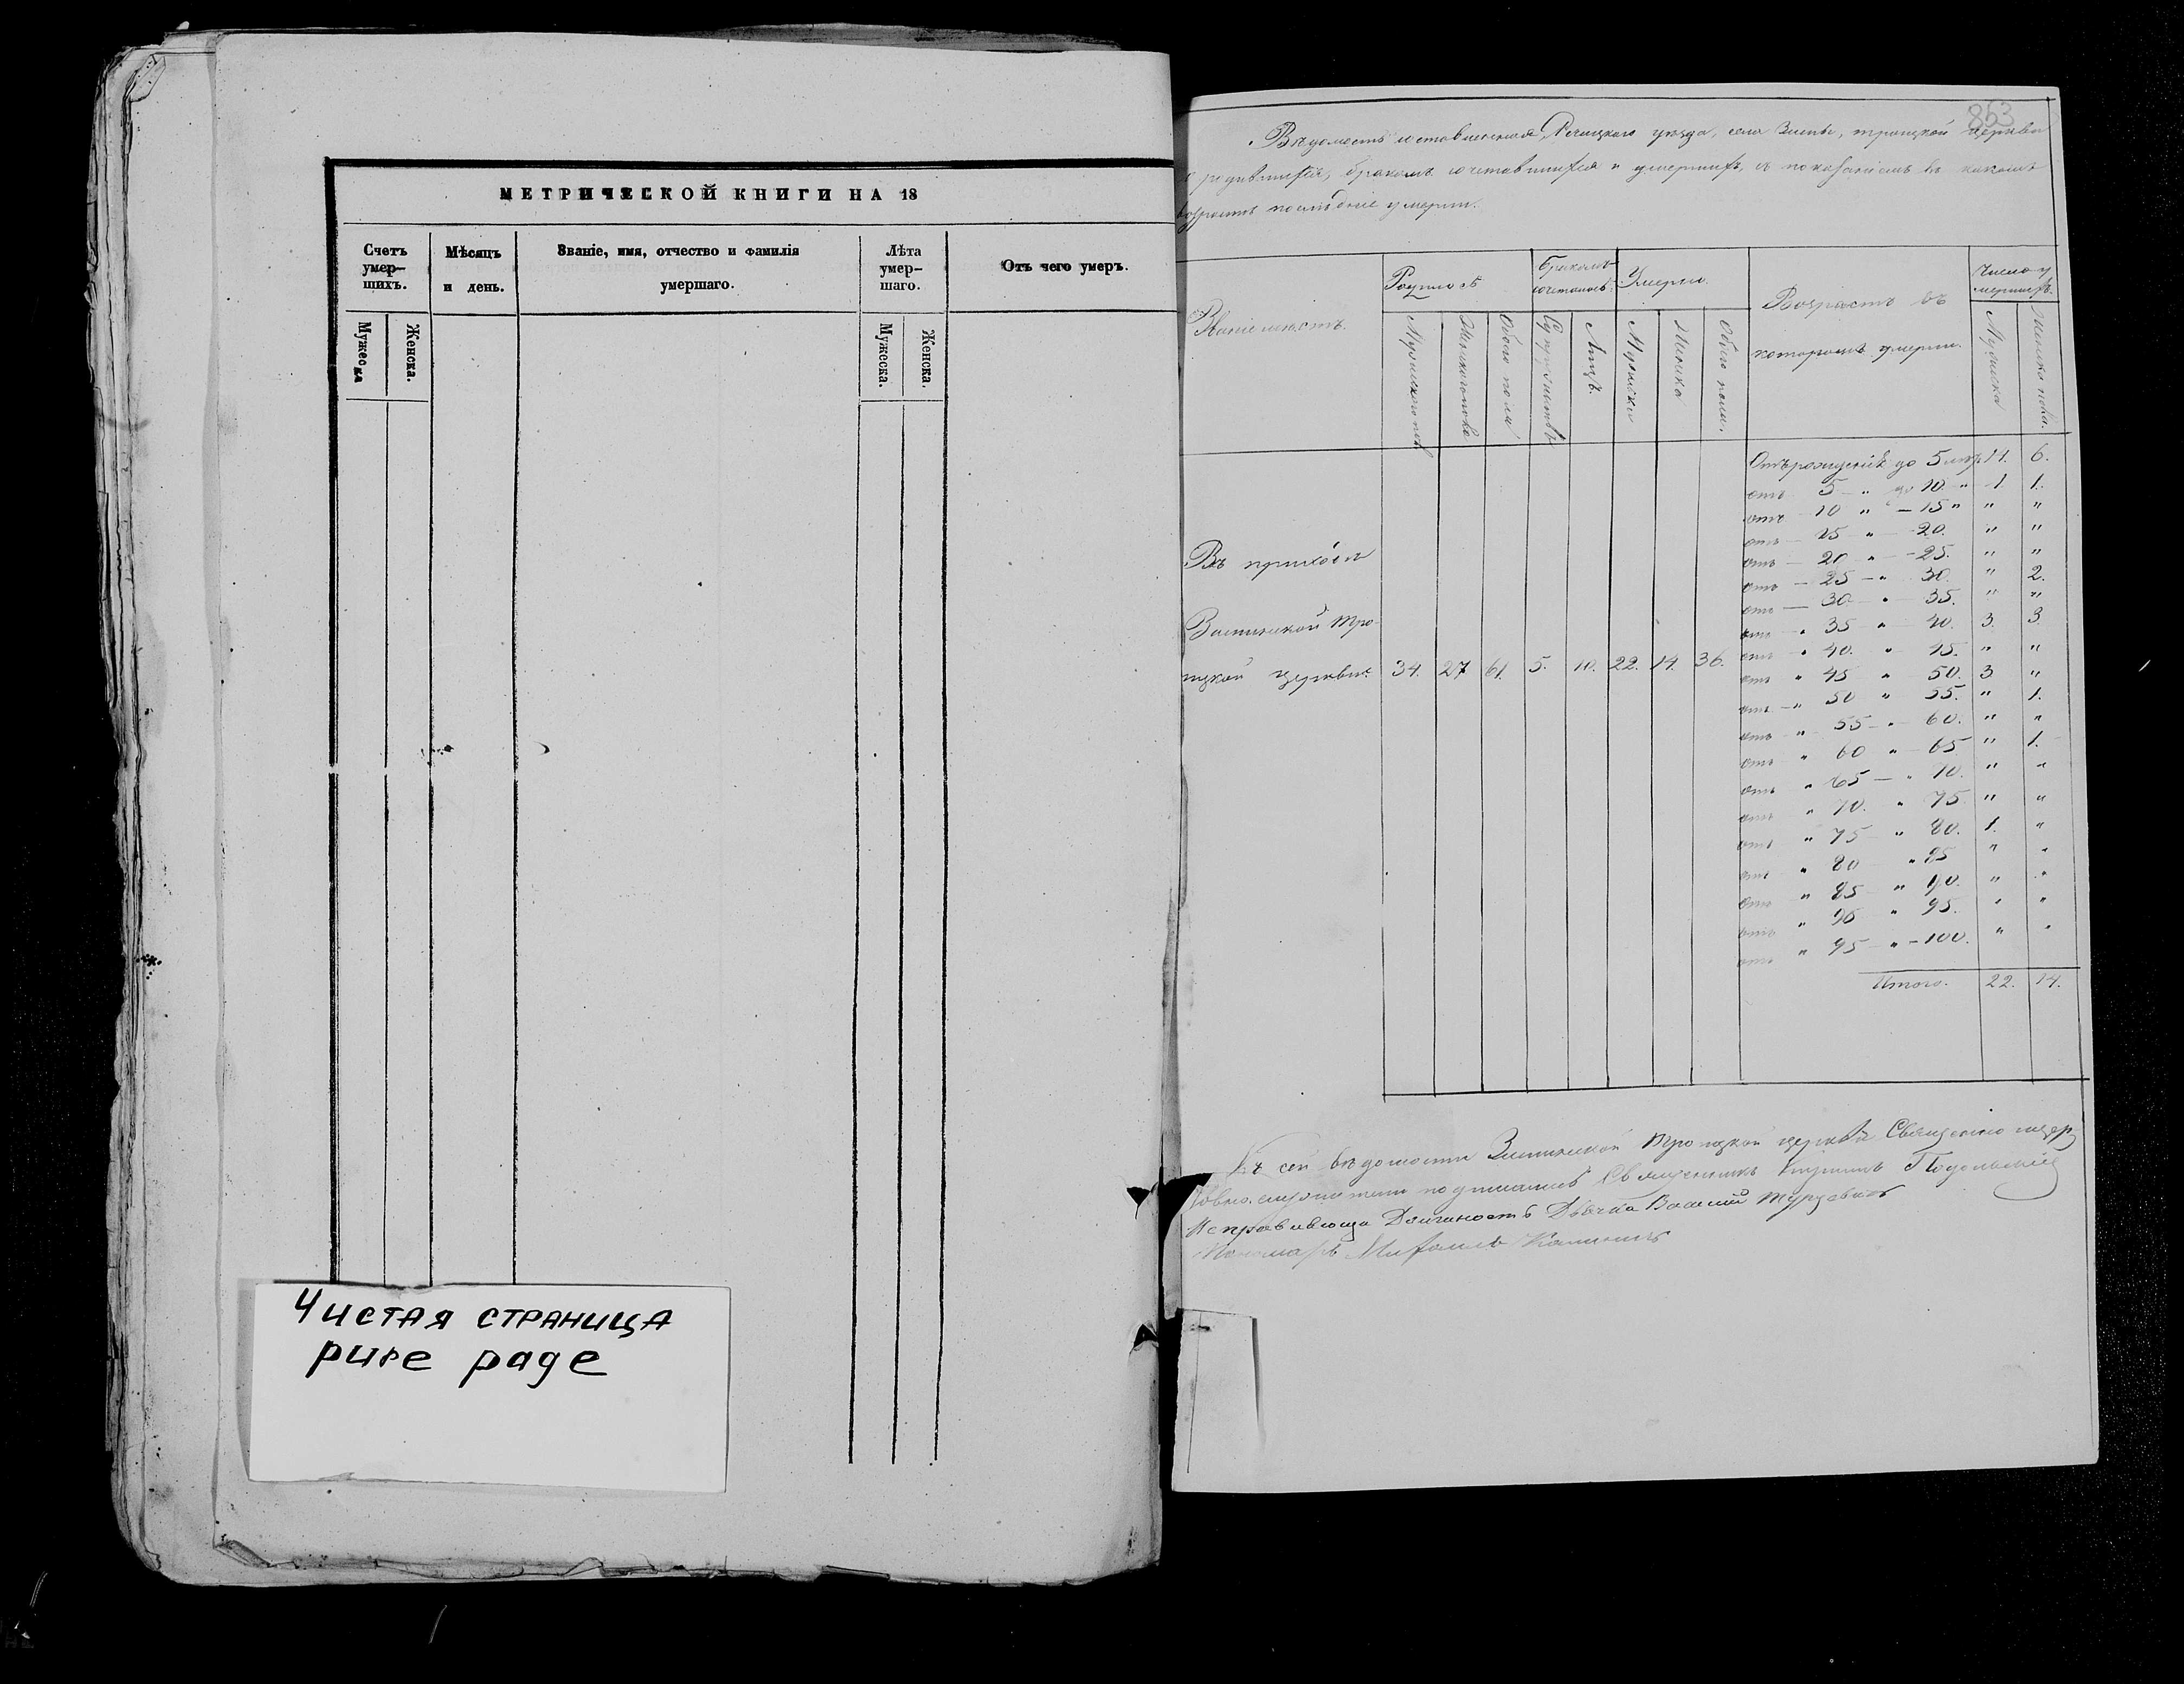 МЕТРИЧЕСКОЙ КНИГИ НА 18
Счетъ умер-шихъ.
Мѣсяцъ и день.
Званіе, имя, отчество и фамилія умершаго.
Лѣта умер-шаго.
Отъ чего умеръ.
Мужеска
Женска.
Мужеска.
Женска.
Чистая страница
pure page
863
Вѣдомость составленная Рѣчицкаго уѣзда, села троицкой церкви
родившихся, бракомъ сочетавшихся и умершихъ, съ показаніемъ въ какомъ
возрастѣ послѣдніе умерли.
Званіе мѣстъ.
Родилось
Бракомъ сочеталось
Умерло.
Возрастъ въ
которомъ умерли.
Число умершихъ.
Мужскаго пола
Женскаго пола
Обоего пола
Супружествъ
Лицъ.
Мужеска
Женска
Обоего пола.
Мужеска
Женска пола.
Отъ рожденія до 5 лѣтъ 11. 6.
отъ 5 " до 10. " 1. 1.
отъ 10 " — 15 " " "
отъ — 15 " — 20. " "
отъ — 20 " — 25. " "
отъ — 25 — " 30. " 2.
отъ — 30 " 35. " "
отъ " 35 " 40. 3. 3.
отъ " 40. " 45. " "
отъ " 45 " 50. 3 "
отъ — " 50 " 55. " 1.
отъ " 55 — " 60. " "
отъ " 60 " — 65 " 1.
отъ " 65 — " 70. " "
отъ " 70. " 75. " "
отъ " 75 " 80. 1. "
отъ " 80 " 85 " "
отъ " 85 " 90. " "
отъ " 90 " 95. " "
отъ " 95 " — 100. " "
Итого. 22. 14.
Въ приходѣ
Тро-
ицкой церкви. 34. 27 61. 5. 10. 22. 14. 36.
Къ сей вѣдомости Троицкой церкви Священно церков
но служители подписались Священникъ Подольскій
Исправляющій Должность Дьячка Василій
Пономарь Михаилъ